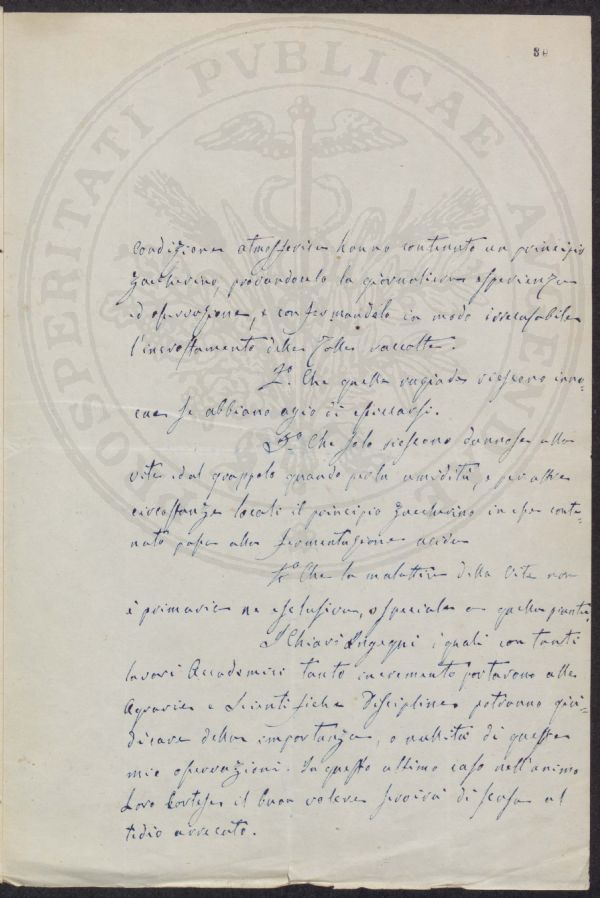 PROSPERITATI PVBLICAE AVGENDAE
condizione atmosferica hanno contenuto un principio
zuccherino, provandocelo la giornaliera esperienza
ed osservazione, e confermandolo in modo irrecusabile
l'incrostamento delle zolle raccolte.
2º. Che quelle rugiade riescono inno-
cue se abbiano agio di essiccarsi.
3º Che solo riescono dannose alla
vite, ed al grappolo quando per la umidità, e per altre
circostanze locali il principio zuccherino in esse conte-
nuto passa alla fermentazione acida
4º Che la malattia della vite non
è primaria ne esclusiva, o speciale a quella pianta.
I Chiari Ingegni i quali con tanti
lavori Accademici tanto incremento portarono alle
Agrarie e Scientifiche Discipline potranno giu-
dicare della importanza, o nullità di queste
mie osservazioni. In questo ultimo caso nell'animo
Loro Cortese il buon volere servirà di scusa al
tedio arrecato.